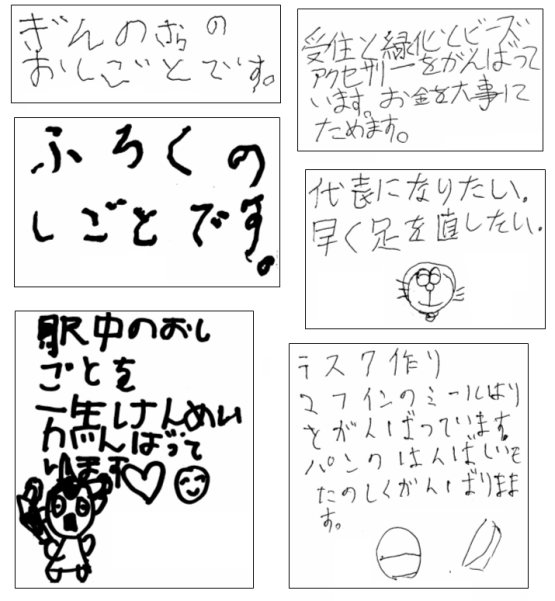 ぎんのさらの
おしごとです。
受住と緑化とビーズ
アクセサリーをがんばって
います。お金を大事に
ためます。
ふろくの
しごとです。
代表になりたい。
早く足を直したい。
駅中のおし
ごとを
一生けんめい
がんばって
います
ラスク作り
マフインのミールはり
とがんばっています。
パンクはんばいを
たのしくがんばりまま
す。